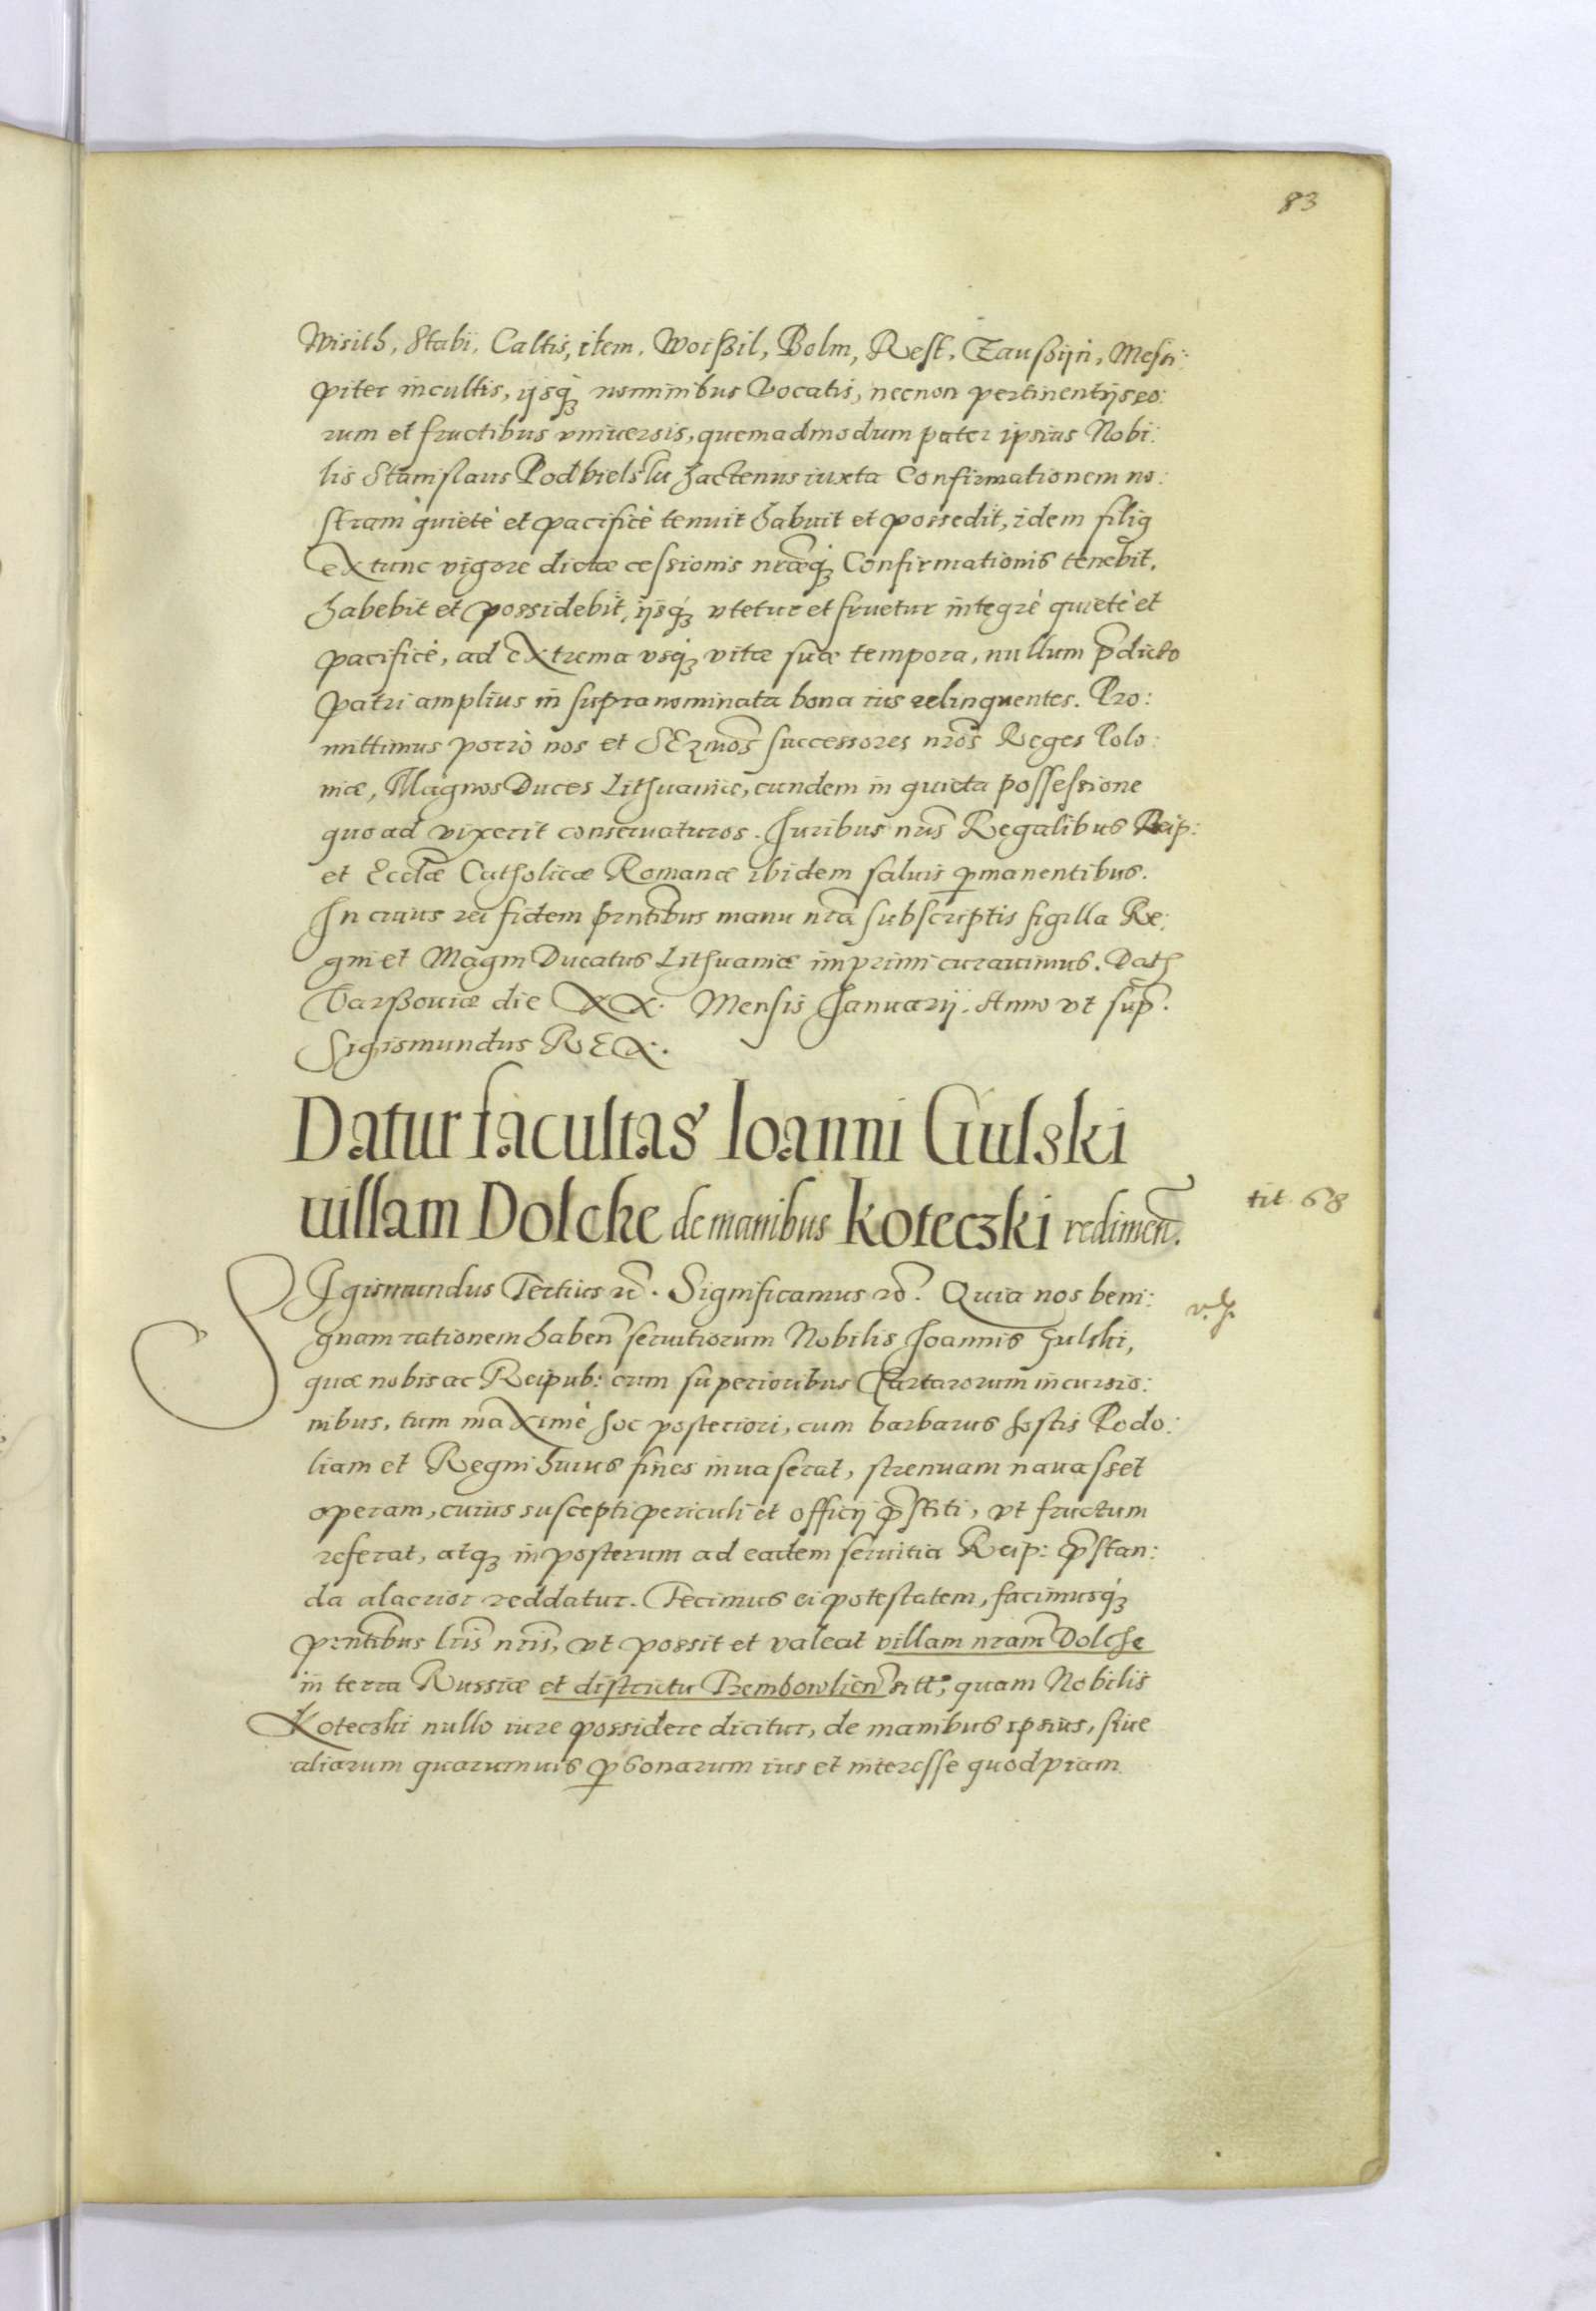 83
Wisith, Stabi, Caltis, item, Woißil, Bolm, Rest, Taußijn, Mesn:
piter incultis, ijsq́ꝫ nominibus vocatis, necnon pertinentijs eo:
rum et fructibus vniuersis, quemadmodum pater ipsius Nobi:
lis Stanislaus Podbielski hactenus iuxta Confirmationem no:
stram quietè et pacificè tenuit habuit et possedit, idem filiꝯ
ex tunc vigore dictæ cessionis nr̃æq́ꝫ Confirmationis tenebit,
habebit et possidebit, ijsq́ꝫ vtetur et fruetur integrè quietè et
pacificè, ad extrema vsq́ꝫ vitæ suæ tempora, nullum p̃dicto
patri amplius in supranominata bona ius relinquentes. Pro:
mittimus porrò nos et SErmõs successores nr̃os Reges Polo:
niæ, Magnos Duces Lithuaniæ, eundem in quieta possessione
quoad vixerit conseruaturos. Iuribus nr̃is Regalibus Reip:
et Eccl̃æ Catholicæ Romanæ ibidem saluis ꝑmanentibus.
In cuius rei fidem pr̃ntibus manu nr̃a subscriptis sigilla Re:
gni et Magni Ducatus Lithuaniæ imprimi curauimus. Dath
Varßouiæ die XX. Mensis Ianuarij. Anno vt sup̃.
Sigismundus REX.
Datur facultas Ioanni Gulski
uillam Dolche de manibus Koteczki redimeñ.
tit. 68
SIgismundus Tertius rc̃. Significamus rc̃. Quia nos beni:
gnam rationem habeñ seruitiorum Nobilis Ioannis Gulski,
quæ nobis ac Reipub: cum superioribus Tartarorum incursio:
nibus, tum maximè hoc posteriori, cum barbarus hostis Podo:
liam et Regni huius fines inuaserat, strenuam nauasset
operam, cuius suscepti periculi et officij p̃stiti, vt fructum
referat, atqꝫ in posterum ad eadem seruitia Reip: p̃stan:
da alacrior reddatur. Fecimus ei potestatem, facimusq́ꝫ
pr̃ntibus lr̃is nr̃is, vt possit et valeat villam nr̃am Dolche
in terra Russiæ et districtu Trembowlieñ sitt., quam Nobilis
Koteczki nullo iure possidere dicitur, de manibus ipsius, siue
aliarum quarumuis ꝑsonarum ius et interesse quodpiam